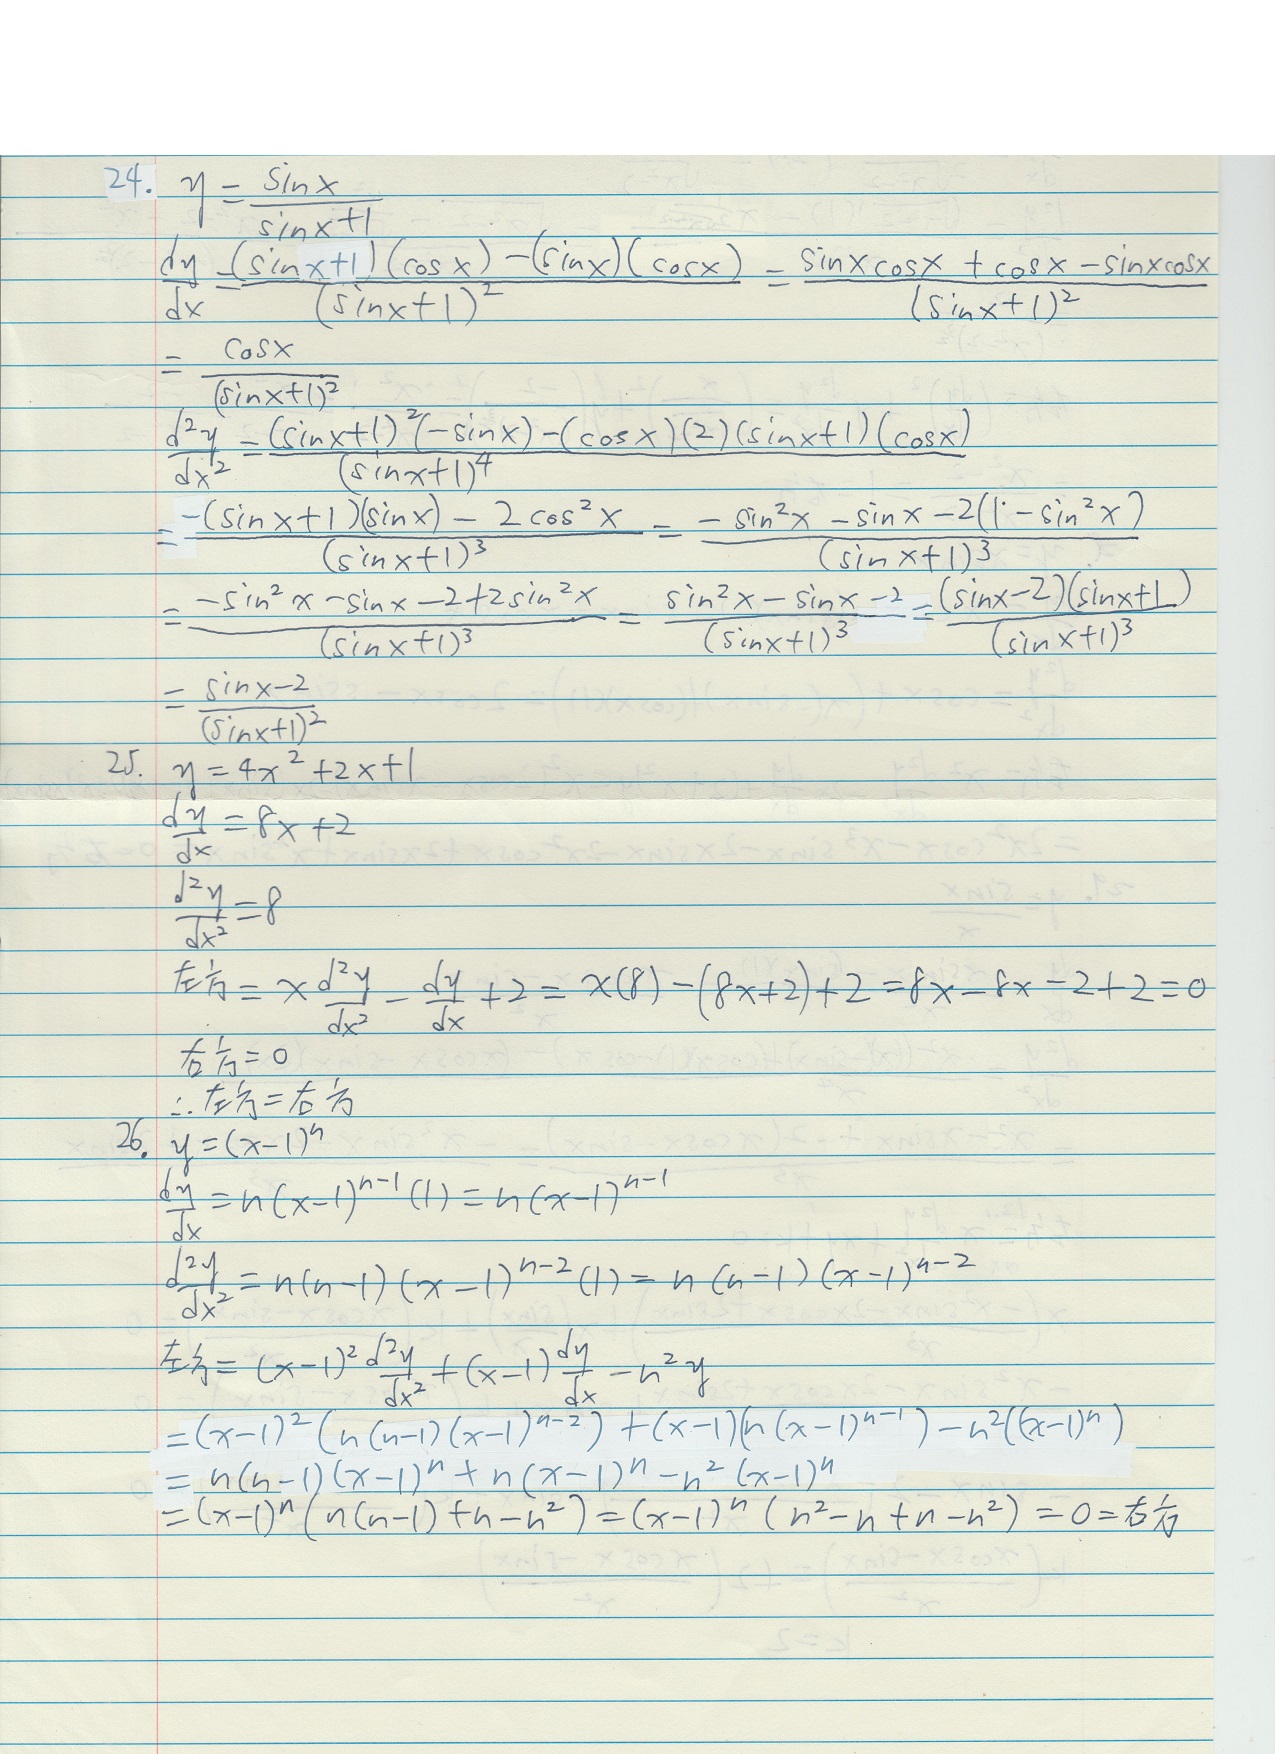 24. y = sinx/(sinx+1)
dy/dx = ((sinx+1)(cosx)-(sinx)(cosx))/(sinx+1)² = (sinxcosx + cosx - sinxcosx)/(sinx+1)²
= cosx/(sinx+1)²
d²y/dx² = ((sinx+1)²(-sinx)-(cosx)(2)(sinx+1)(cosx))/(sinx+1)⁴
= (-(sinx+1)(sinx) - 2cos²x)/(sinx+1)³ = (-sin²x - sinx - 2(1-sin²x))/(sinx+1)³
= (-sin²x - sinx - 2 + 2sin²x)/(sinx+1)³ = (sin²x - sinx - 2)/(sinx+1)³ = (sinx-2)(sinx+1)/(sinx+1)³
= (sinx-2)/(sinx+1)²
25. y = 4x² + 2x + 1
dy/dx = 8x + 2
d²y/dx² = 8
左方 = x d²y/dx² - dy/dx + 2 = x(8) - (8x+2) + 2 = 8x - 8x - 2 + 2 = 0
右方 = 0
∴ 左方 = 右方
26. y = (x-1)ⁿ
dy/dx = n(x-1)ⁿ⁻¹(1) = n(x-1)ⁿ⁻¹
d²y/dx² = n(n-1)(x-1)ⁿ⁻²(1) = n(n-1)(x-1)ⁿ⁻²
左方 = (x-1)² d²y/dx² + (x-1) dy/dx - n²y
= (x-1)²(n(n-1)(x-1)ⁿ⁻²) + (x-1)(n(x-1)ⁿ⁻¹) - n²((x-1)ⁿ)
= n(n-1)(x-1)ⁿ + n(x-1)ⁿ - n²(x-1)ⁿ
= (x-1)ⁿ(n(n-1)+n-n²) = (x-1)ⁿ(n²-n+n-n²) = 0 = 右方